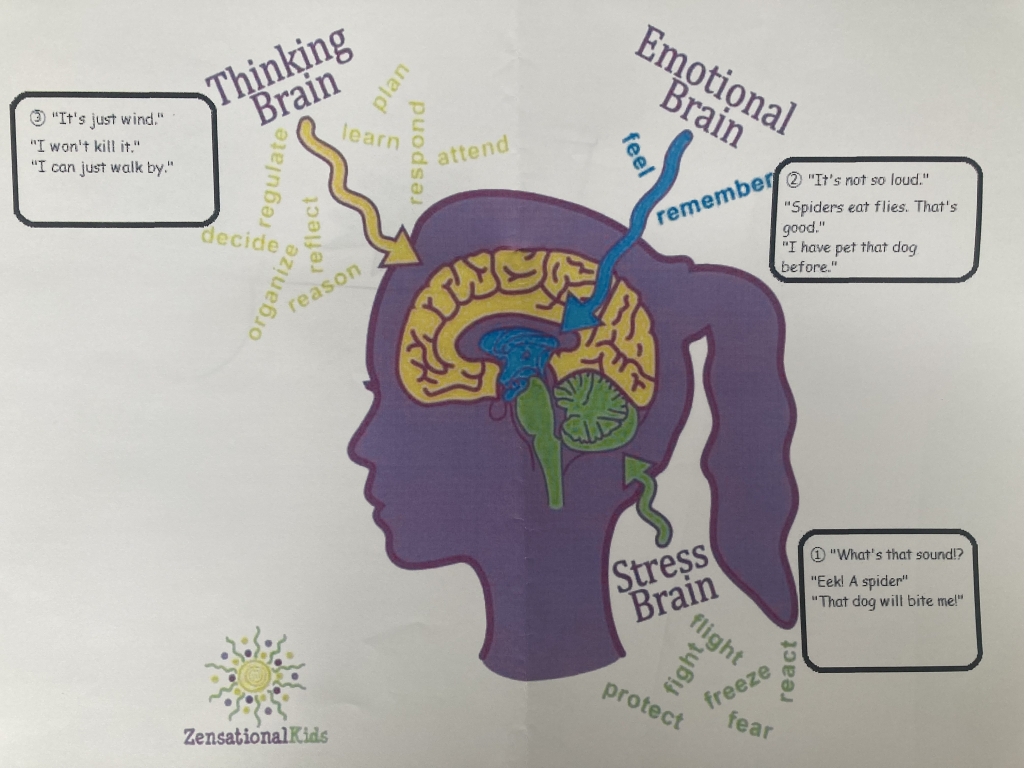 Thinking
Brain
plan
learn
respond
attend
regulate
decide
reflect
organize
reason
③ "It's just wind."
"I won't kill it."
"I can just walk by."
Emotional
Brain
feel
remember
② "It's not so loud."
"Spiders eat flies. That's
good."
"I have pet that dog
before."
Stress
Brain
flight
fight
freeze
react
protect
fear
① "What's that sound!?
"Eek! A spider"
"That dog will bite me!"
ZensationalKids